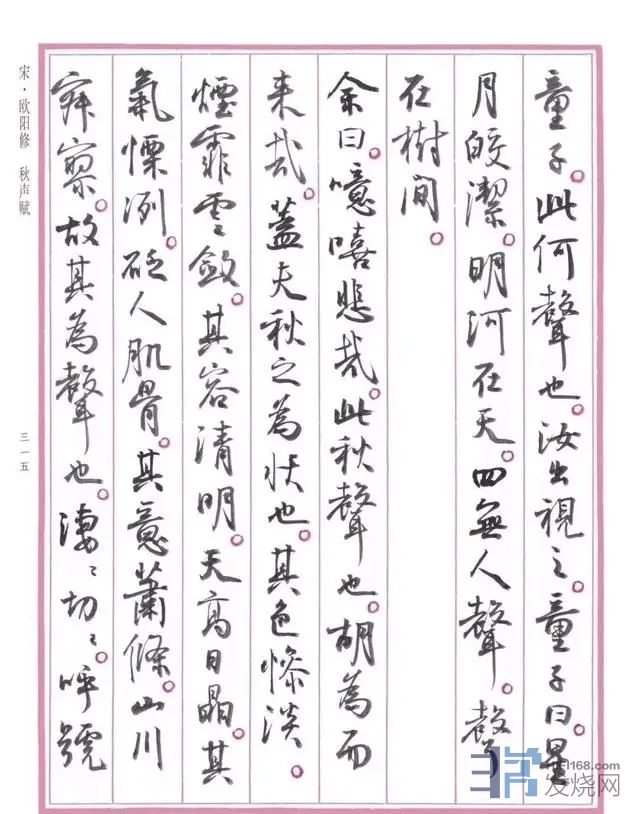 童子。此何聲也。汝出視之。童子曰。星
月皎潔。明河在天。四無人聲。聲
在樹間。
余曰。噫嘻悲哉。此秋聲也。胡為而
来哉。蓋夫秋之為狀也。其色慘淡。
煙霏雲斂。其容清明。天高日晶。其
氣慄冽。砭人肌骨。其意蕭條。山川
寂寥。故其為聲也。凄〻切〻。呼號
宋·欧阳修 秋声赋
三一五
发烧网